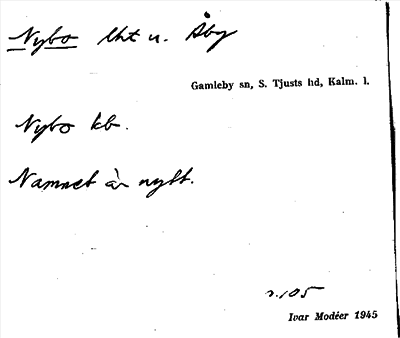 Nybo lht u. Åby
Gamleby sn, S. Tjusts hd, Kalm. l.
Nybo kb.
Namnet är nytt.
s. 105
Ivar Modéer 1945